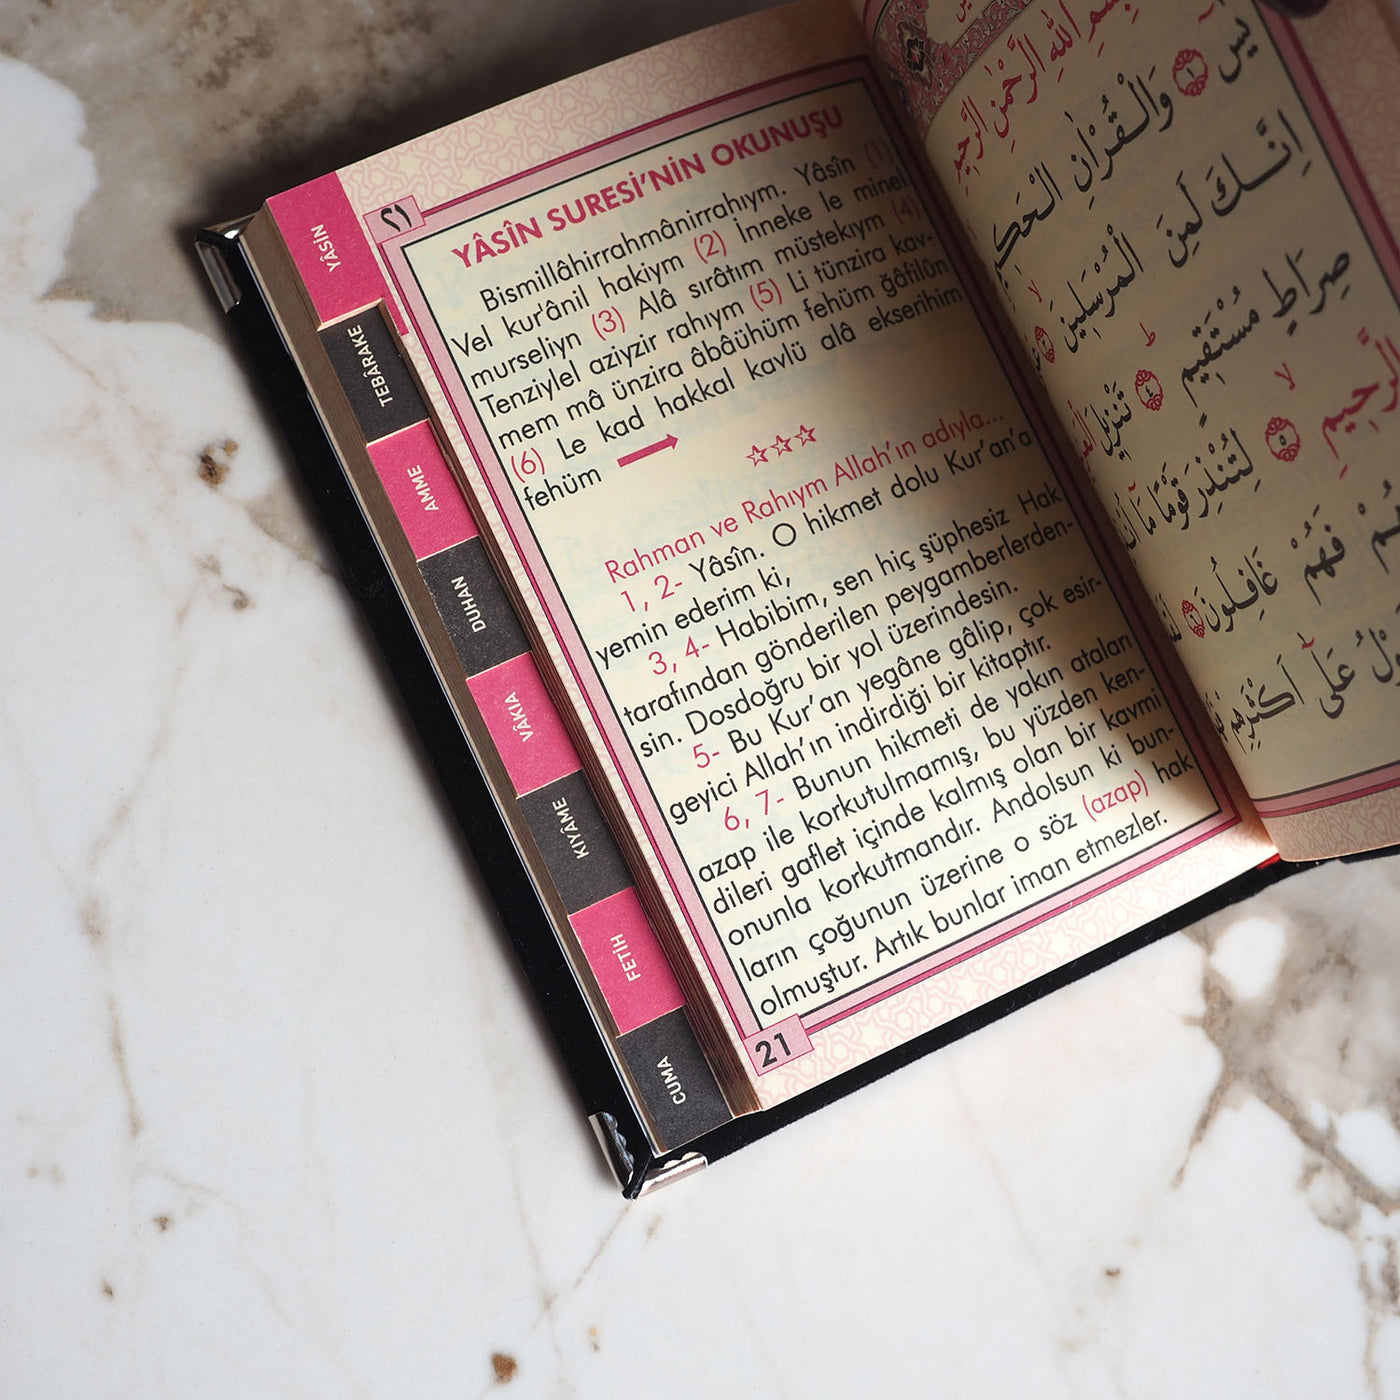 YÂSÎN
TEBÂRAKE
AMME
DUHAN
VÂKIA
KIYÂME
FETİH
CUMA
٢١
YÂSÎN SURESİ'NİN OKUNUŞU
Bismillâhirrahmânirrahıym. Yâsîn (1)
Vel kur'ânil hakiym (2) İnneke le minel
murseliyn (3) Alâ sırâtım müstekıym (4)
Tenziylel aziyzir rahıym (5) Li tünzira kav-
mem mâ ünzira âbâühüm fehüm ğâfilûn
(6) Le kad hakkal kavlü alâ ekserihim
fehüm
Rahman ve Rahıym Allah'ın adıyla...
1, 2- Yâsîn. O hikmet dolu Kur'an'a
yemin ederim ki,
3, 4- Habibim, sen hiç şüphesiz Hak
tarafından gönderilen peygamberlerden-
sin. Dosdoğru bir yol üzerindesin.
5- Bu Kur'an yegâne gâlip, çok esir-
geyici Allah'ın indirdiği bir kitaptır.
6, 7- Bunun hikmeti de yakın ataları
azap ile korkutulmamış, bu yüzden ken-
dileri gaflet içinde kalmış olan bir kavmi
onunla korkutmandır. Andolsun ki bun-
ların çoğunun üzerine o söz (azap) hak
olmuştur. Artık bunlar iman etmezler.
21
بِسْمِ اللّٰهِ الرَّحْمٰنِ الرَّحِيمِ
يٰسٓ ﴿١﴾ وَالْقُرْاٰنِ الْحَكِيمِ
اِنَّكَ لَمِنَ الْمُرْسَلِينَ
صِرَاطٍ مُسْتَقِيمٍ ﴿٤﴾ تَنْزِيلَ
الرَّحِيمِ ﴿٥﴾ لِتُنْذِرَ قَوْمًا مَٓا
فَهُمْ غَافِلُونَ ﴿٦﴾
عَلٰٓى اَكْثَرِهِمْ